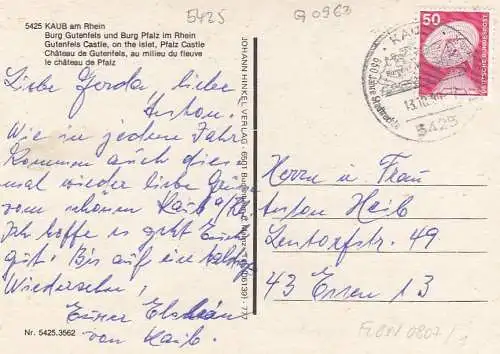 5425
G 0963
5425 KAUB am Rhein
Burg Gutenfels und Burg Pfalz im Rhein
Gutenfels Castle, on the islet, Pfalz Castle
Château de Gutenfels, au milieu du fleuve
le château de Pfalz
Liebe Gerda, lieber
Anton.
Wie in jedem Jahr
kommen auch dies
mal wieder liebe Grüße
vom schönen Kaub a/Rh
Ich hoffe es geht Euch
gut. Bis auf ein baldiges
Wiedersehn,
Eure
von Kaub.
Nr. 5425.3562
JOHANN HINKEL VERLAG 6501
50
DEUTSCHE BUNDESPOST
KAUB
650 Jahre Stadtrechte
13.10.
5425
Herrn u Frau
Anton Heib
49
43 Essen 13